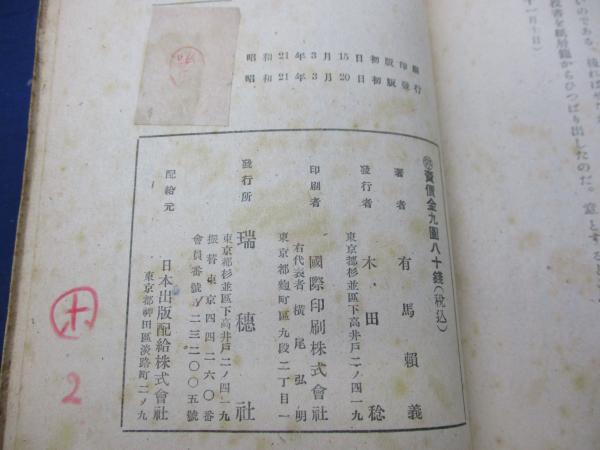 昭和21年3月15日初版印刷
昭和21年3月20日初版發行
賣價金九圓八十錢(稅込)
著者 有馬賴義
發行者 木・田稔
東京都杉並區下高井戸二ノ四一九
印刷者 國際印刷株式會社
右代表者 橫尾弘明
東京都麴町區九段二丁目一
發行所 瑞穗社
東京都杉並區下高井戸二ノ四一九
振替東京四四二一六〇番
會員番號A二三二〇〇五號
配給元 日本出版配給株式會社
東京都神田區淡路町二ノ九
十
2